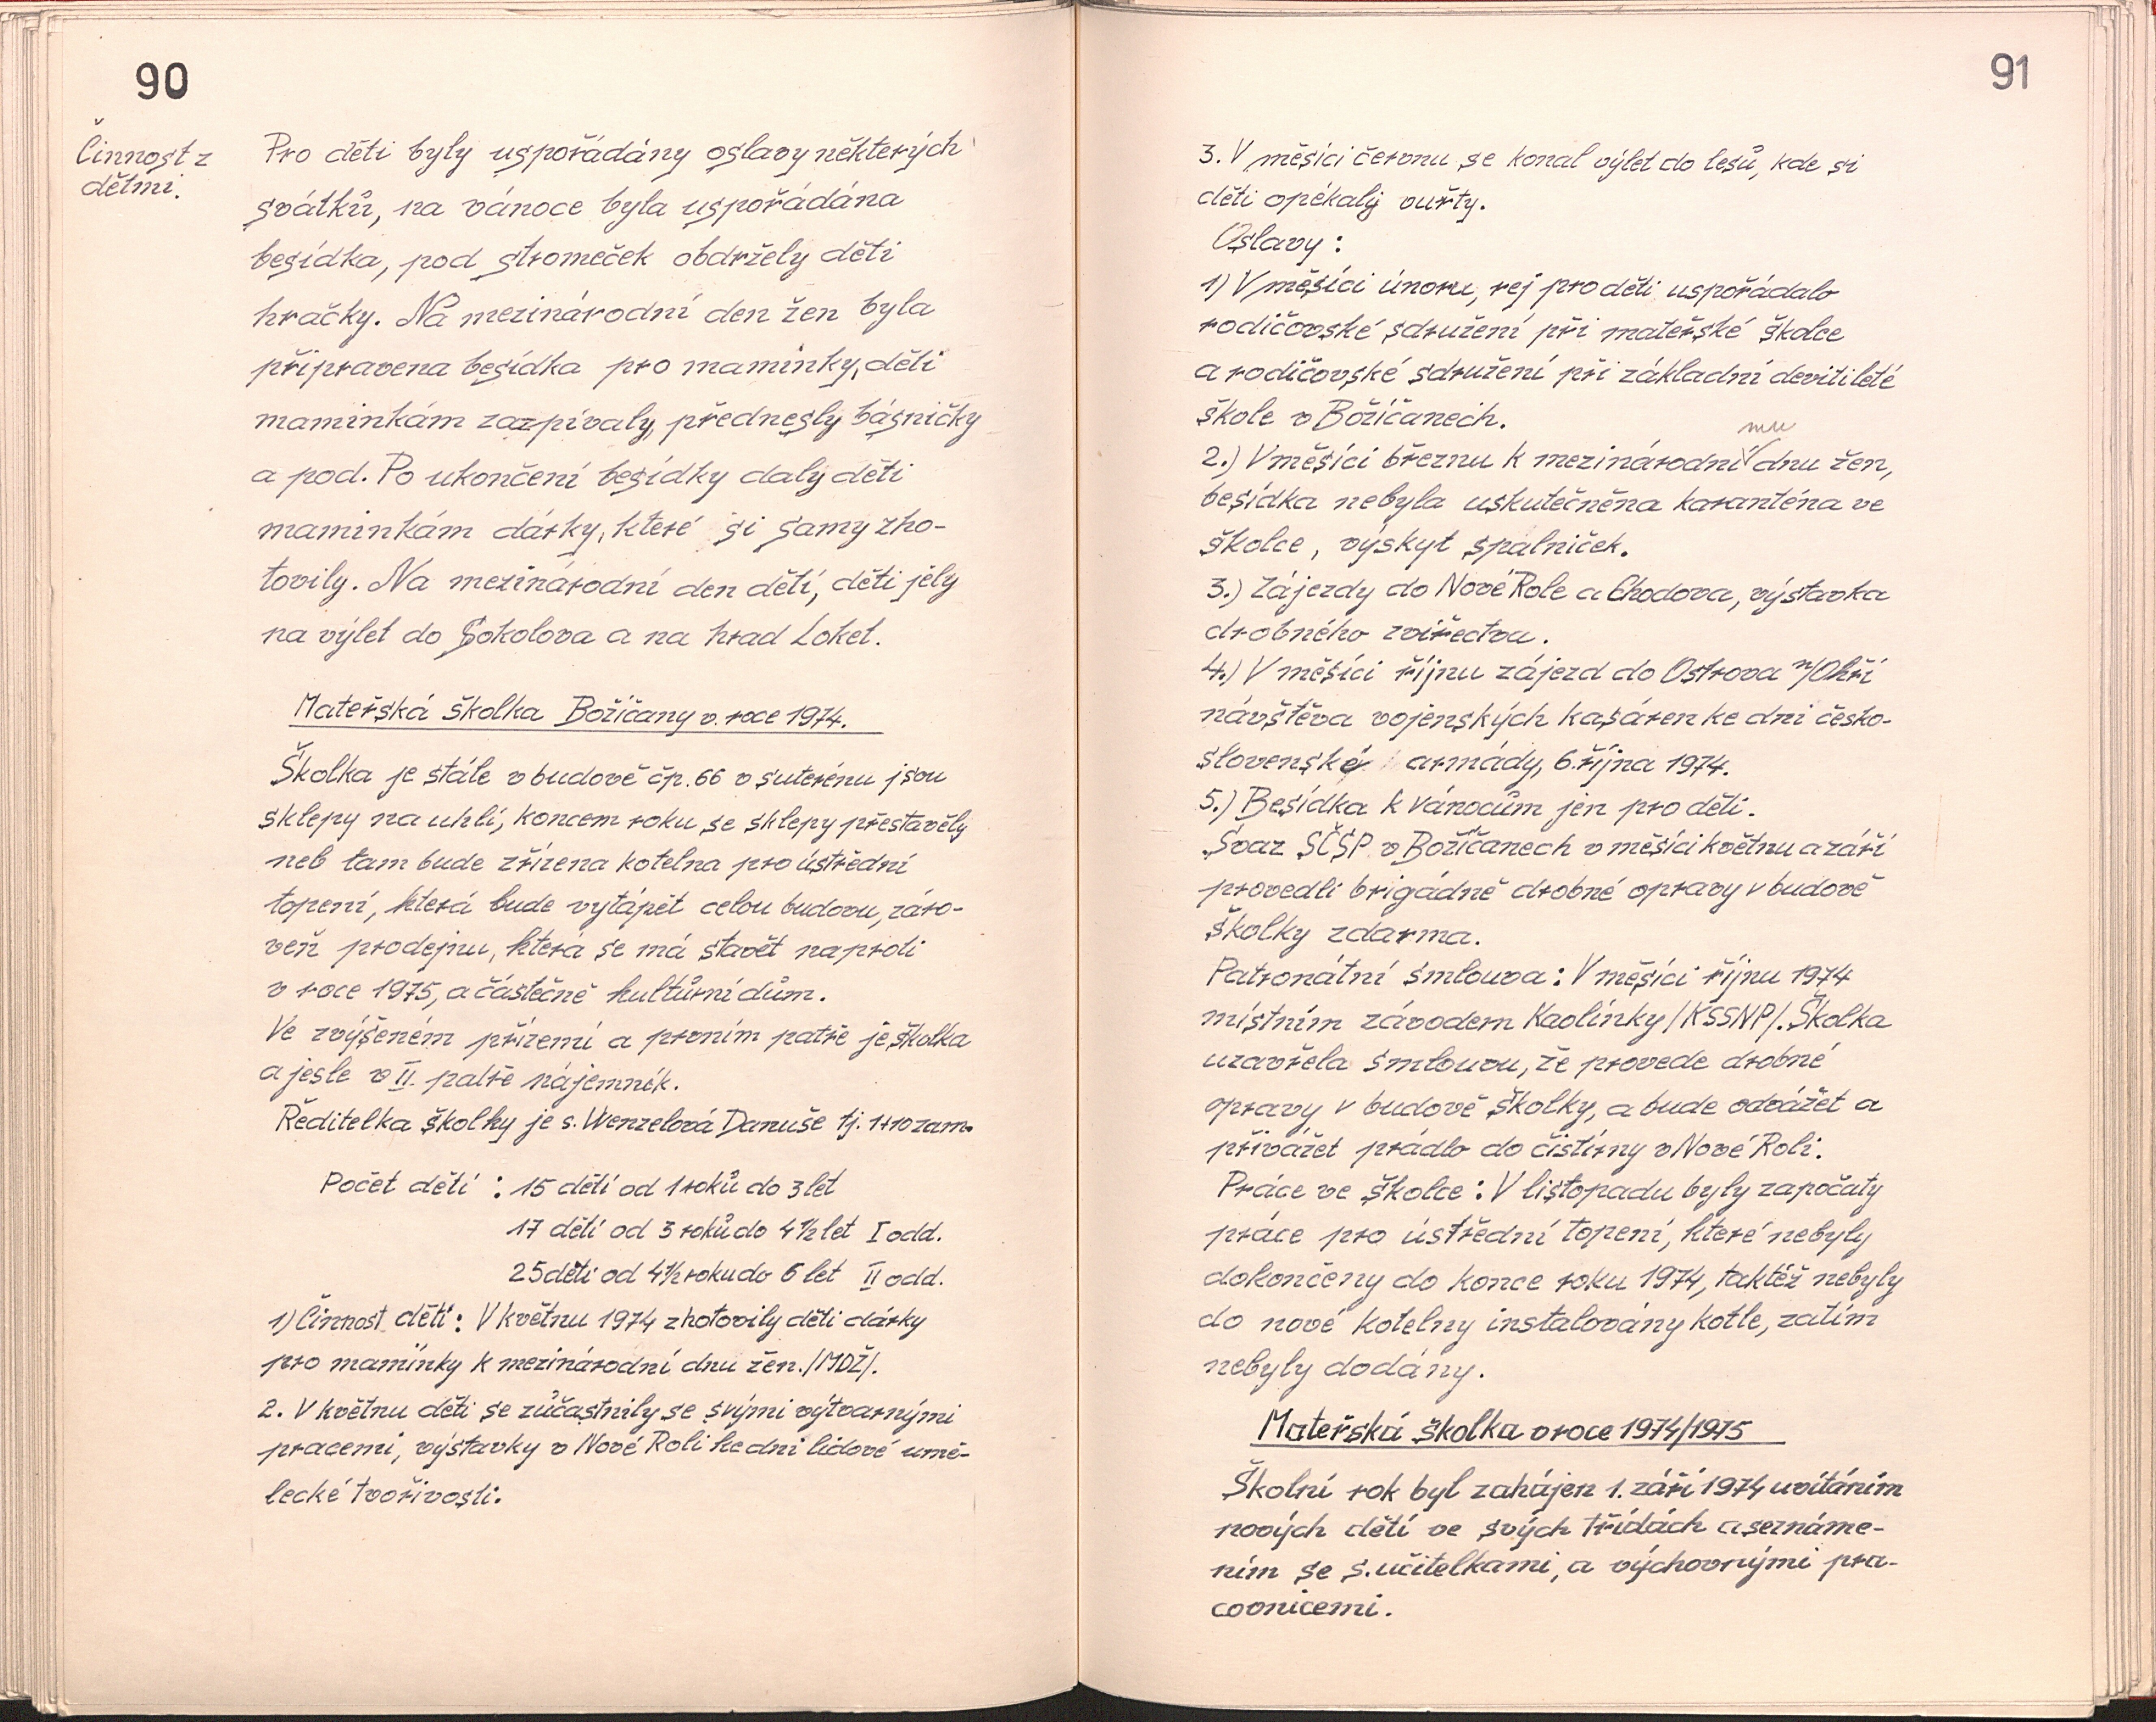 90
Činnost z
dětmi.
Pro děti byly uspořádány oslavy některých
svátků, na vánoce byla uspořádána
besídka, pod stromeček obdržely děti
hračky. Na mezinárodní den žen byla
připravena besídka pro maminky, děti
maminkám zazpívaly, přednesly básničky
a pod. Po ukončení besídky daly děti
maminkám dárky, které si samy zho-
tovily. Na mezinárodní den dětí, děti jely
na výlet do Sokolova a na hrad Loket.
Mateřská školka Božíčany v. roce 1974.
Školka je stále v budově čp. 66 v suterénu jsou
sklepy na uhlí, koncem roku se sklepy přestavěly
neb tam bude zřízena kotelna pro ústřední
topení, která bude vytápět celou budovu, záro-
veň prodejnu, která se má stavět naproti
v roce 1975, a částečně kultůrní dům.
Ve zvýšeném přízemí a prvním patře je školka
a jesle v II. patře nájemník.
Ředitelka školky je s. Wenzelová Danuše tj. 1+10 zam.
Počet dětí : 15 dětí od 1 roků do 3 let
17 dětí od 3 roků do 4 1/2 let I odd.
25 dětí od 4 1/2 roku do 6 let II odd.
1) Činnost dětí : V květnu 1974 zhotovily děti dárky
pro maminky k mezinárodní dnu žen. /MDŽ/.
2. V květnu děti se zůčastnily se svými výtvarnými
pracemi, výstavky v Nové Roli ke dni lidové umě-
lecké tvořivosti.
91
3. V měsíci červnu se konal výlet do lesů, kde si
děti opékaly vuřty.
Oslavy :
1) V měsíci únoru, rej pro děti uspořádalo
rodičovské sdružení při mateřské školce
a rodičovské sdružení při základní devitileté
škole v Božíčanech.
mu
2.) V měsíci březnu k mezinárodní dnu žen,
besídka nebyla uskutečněna karanténa ve
školce, výskyt spalniček.
3.) Zájezdy do Nové Role a Chodova, výstavka
drobného zvířectva.
4.) V měsíci říjnu zájezd do Ostrova n/Ohří
návštěva vojenských kasáren ke dni česko-
slovenské armády, 6. října 1974.
5.) Besídka k vánocům jen pro děti.
Svaz SČSP v Božíčanech v měsíci květnu a září
provedli brigádně drobné opravy v budově
školky zdarma.
Patronátní smlouva : V měsíci říjnu 1974
místním závodem Kaolinky /KSSNP/. Školka
uzavřela smlouvu, že provede drobné
opravy v budově školky, a bude odvážet a
přivážet prádlo do čistírny v Nové Roli.
Práce ve školce : V listopadu byly započaty
práce pro ústřední topení, které nebyly
dokončeny do konce roku 1974, taktéž nebyly
do nové kotelny instalovány kotle, zatím
nebyly dodány.
Mateřská školka v roce 1974/1975
Školní rok byl zahájen 1. září 1974 uvítáním
nových dětí ve svých třídách a seznáme-
ním se s. učitelkami, a výchovnými pra-
covnicemi.